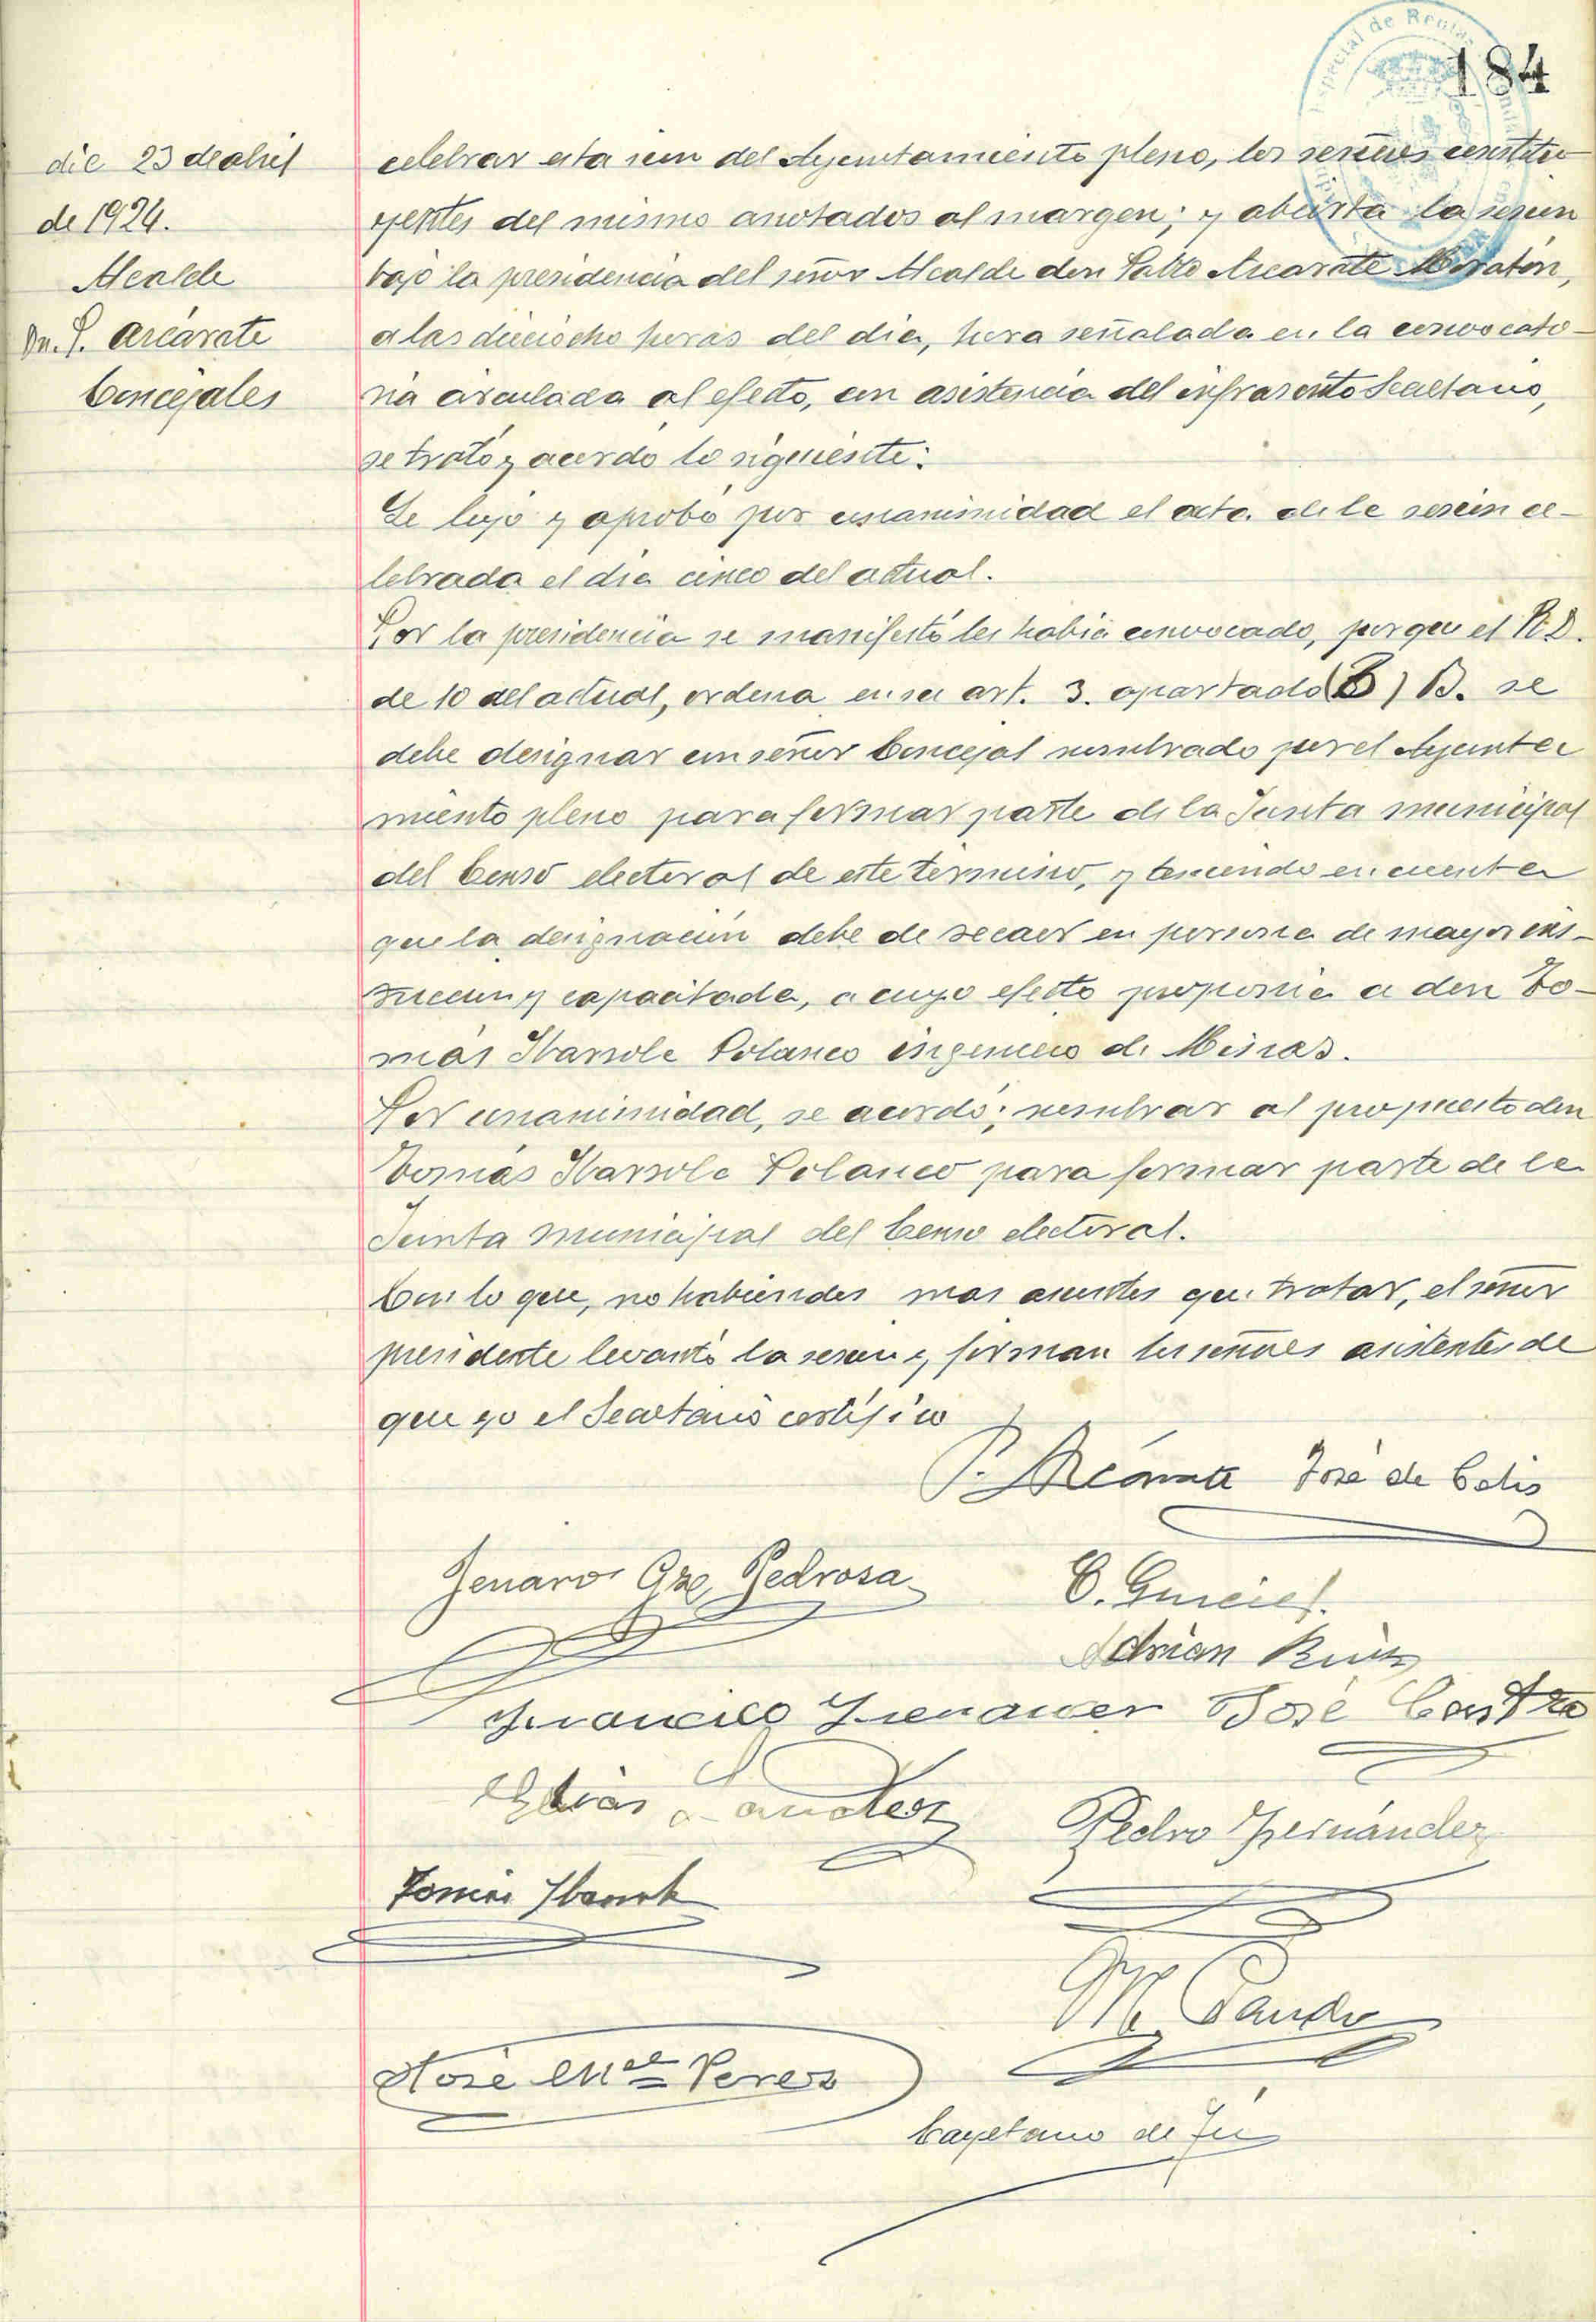 184
dia 23 de abril
de 1924.
Alcalde
Dn. P. Arcárate
Concejales
celebrar esta sesión del Ayuntamiento pleno, los señores constitu-
yentes del mismo anotados al margen; y abierta la sesión
bajo la presidencia del señor Alcalde don Pablo Arcarate Moratón,
a las dieciocho horas del dia, hora señalada en la convocato-
ria circulada al efecto, con asistencia del infrascrito Secretario,
se trató y acordó lo siguiente:
Se leyó y aprobó por unanimidad el acta de la sesión ce-
lebrada el dia cinco del actual.
Por la presidencia se manifestó les habia convocado, porque el R.D.
de 10 del actual, ordena en su art. 3. apartado ( ) B. se
debe designar un señor Concejal nombrado por el Ayunta
miento pleno para formar parte de la Junta municipal
del Censo electoral de este término, y teniendo en cuenta
que la designación debe de recaer en persona de mayor ins-
trucción y capacitada, a cuyo efecto proponia a don To-
más Ibarrola Polanco ingeniero de Minas.
Por unanimidad, se acordó; nombrar al propuesto don
Tomás Ibarrola Polanco para formar parte de la
Junta municipal del Censo electoral.
Con lo que, no habiendos mas asuntos que tratar, el señor
presidente levantó la sesión y firman los señores asistentes de
que yo el Secretario certifico
P. Arcárate José de Celis
Jenaro Gze Pedrosa
Adrian Ruiz
Francisco José Castro
Elias Sanchez
Pedro Fernández
Tomás Ibarrola
M. Pando
José Mª Perez
Cayetano de